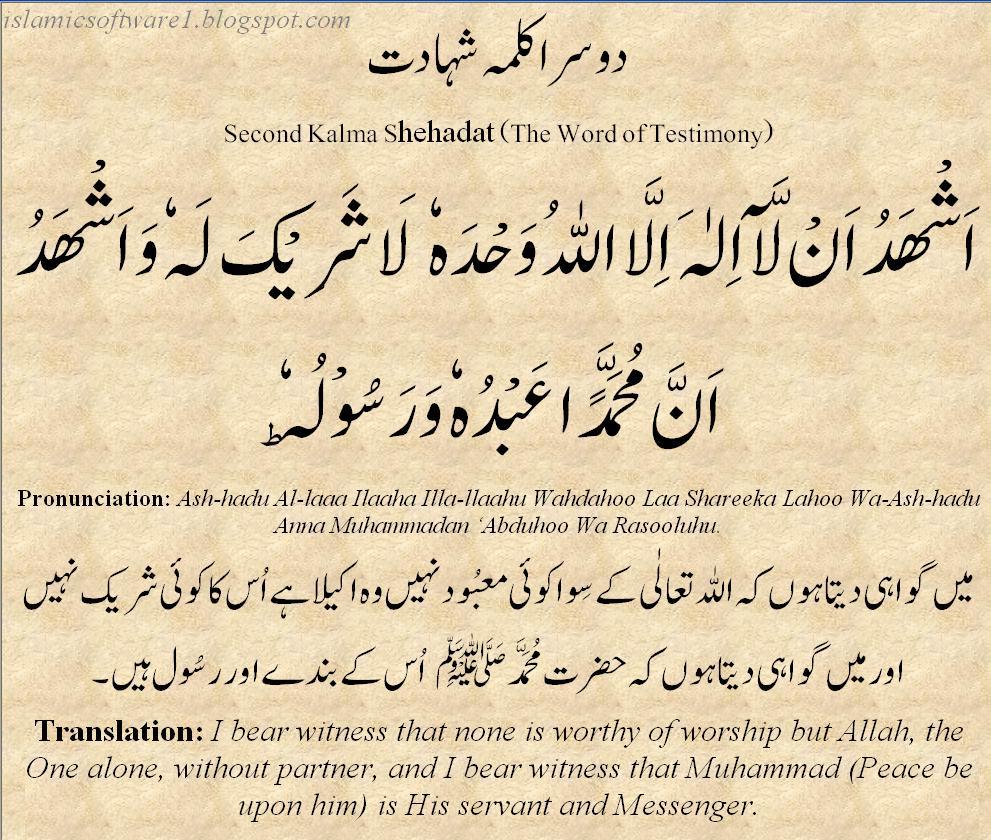 islamicsoftware1.blogspot.com
دوسرا کلمہ شہادت
Second Kalma Shehadat (The Word of Testimony)
اَشْهَدُ اَنْ لَّآ اِلٰہَ اِلَّا اللّٰہُ وَحْدَہٗ لَا شَرِیْکَ لَہٗ وَاَشْهَدُ
اَنَّ مُحَمَّدًا عَبْدُہٗ وَرَسُوْلُہٗ ؕ
Pronunciation: Ash-hadu Al-laaa Ilaaha Illa-llaahu Wahdahoo Laa Shareeka Lahoo Wa-Ash-hadu
Anna Muhammadan ‘Abduhoo Wa Rasooluhu.
میں گواہی دیتا ہوں کہ اللہ تعالٰی کے سِوا کوئی معبُود نہیں وہ اکیلا ہے اُس کا کوئی شریک نہیں
اور میں گواہی دیتا ہوں کہ حضرت مُحَمَّد ﷺ اُس کے بندے اور رسُول ہیں۔
Translation: I bear witness that none is worthy of worship but Allah, the
One alone, without partner, and I bear witness that Muhammad (Peace be
upon him) is His servant and Messenger.